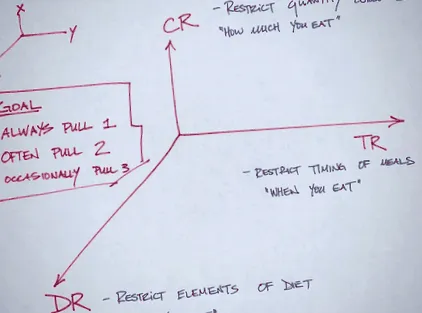 X
Y
CR
- RESTRICT QUANTITY
"HOW MUCH YOU EAT"
GOAL
ALWAYS PULL 1
OFTEN PULL 2
OCCASIONALLY PULL 3
TR
- RESTRICT TIMING OF MEALS
"WHEN YOU EAT"
DR - RESTRICT ELEMENTS OF DIET